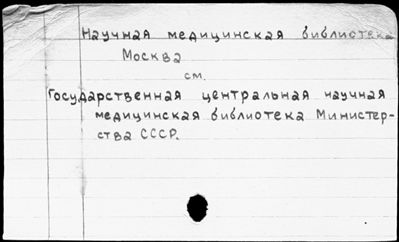 Научная медицинская библиотека
Москва
см.
Государственная центральная научная
медицинская библиотека Министер-
ства СССР.